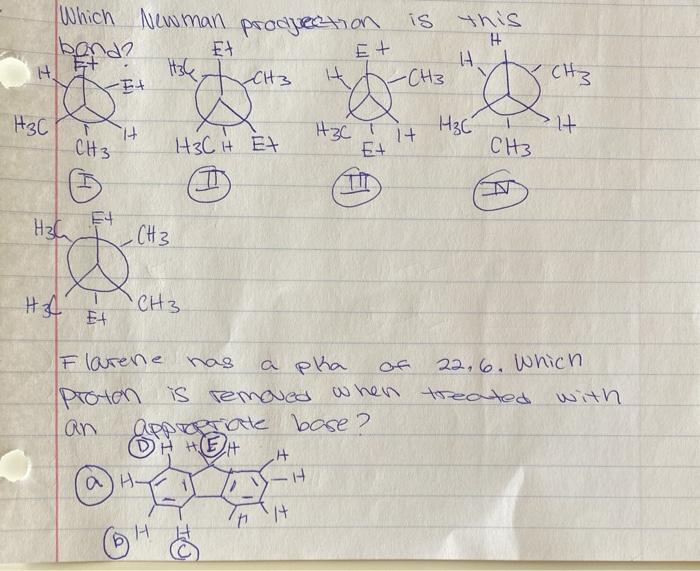 Which Newman progjection is this
bond?
Et
H Et
H3C H
CH3
I
Et
H3C CH3
H3C H Et
II
Et
H CH3
H3C H
Et
III
H
H CH3
H3C H
CH3
IV
H3C Et CH3
H3C Et CH3
Flarene has a pka of 22.6. Which
proton is removed when treated with
an appropriate base?
D H H E H H
a H H
H H
b H H
C